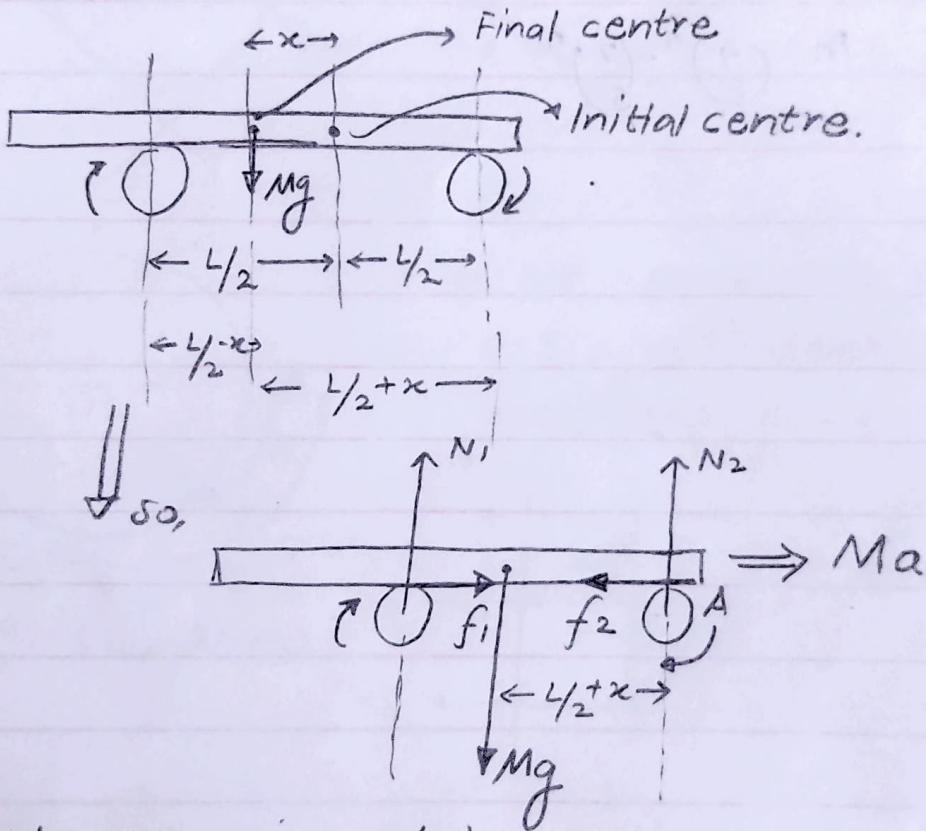 ←x→
Final centre
Initial centre.
Mg
← L/2 → ← L/2 →
← L/2-x →
← L/2+x →
so,
N1 N2
⇒ Ma
f1 f2 A
← L/2+x →
Mg